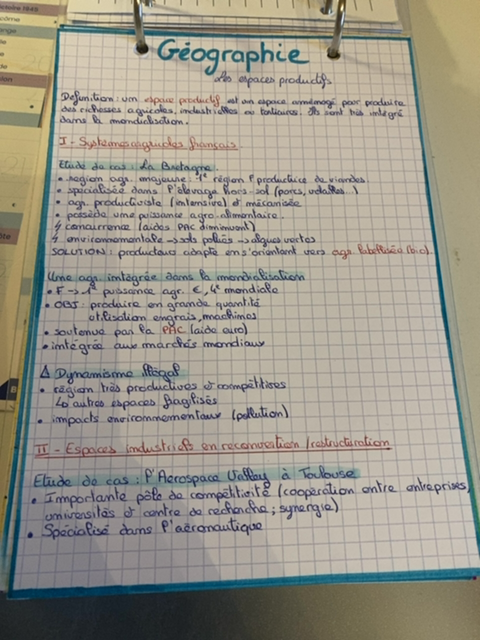 Géographie
Les espaces productifs
Définition : un espace productif est un espace aménagé pour produire
des richesses agricoles, industrielles ou tertiaires. Ils sont très intégré
dans la mondialisation.
I - Systèmes agricoles français
Etude de cas : La Bretagne
• région agr. majeure : 1e région F productrice de viandes
• spécialisée dans l'élevage hors-sol (porcs, volailles...)
• agr. productiviste (intensive) et mécanisée
• possède une puissance agro-alimentaire
↳ concurrence (aides PAC diminuent)
↳ environnementale → sols pollués → algues vertes
SOLUTION : producteurs adapte en s'orientant vers agr. labellisée (bio).
Une agr. intégrée dans la mondialisation
• F → 1e puissance agr. €, 4e mondiale
• OBJ : produire en grande quantité
utilisation engrais, machines
• soutenue par la PAC (aide euro)
• intégrée aux marchés mondiaux
Δ Dynamisme illégal
• région très productives et compétitives
↳ autres espaces fragilisés
• impacts environnementaux (pollution)
II - Espaces industriels en reconversion / restructuration
Etude de cas : l'Aerospace Valley à Toulouse
• Importante pôle de compétitivité (coopération entre entreprises,
universités et centre de recherche ; synergie)
• Spécialisé dans l'aéronautique